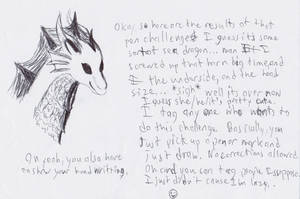 Okay, so here are the results of that
pen challenge. I guess its some
sort of sea dragon... man I
screwed up that horn big time, and
the underside, and the head
size... *sigh* well its over now
I guess she/he/it's pretty cute.
I tag any one who wants to
do this challenge. Basically, you
just pick up a pen or mark and
just draw. No corrections allowed.
Oh and you can tag people I suppose.
I just didn't cause I'm lazy.
Oh yeah, you also have
to show your hand writing.